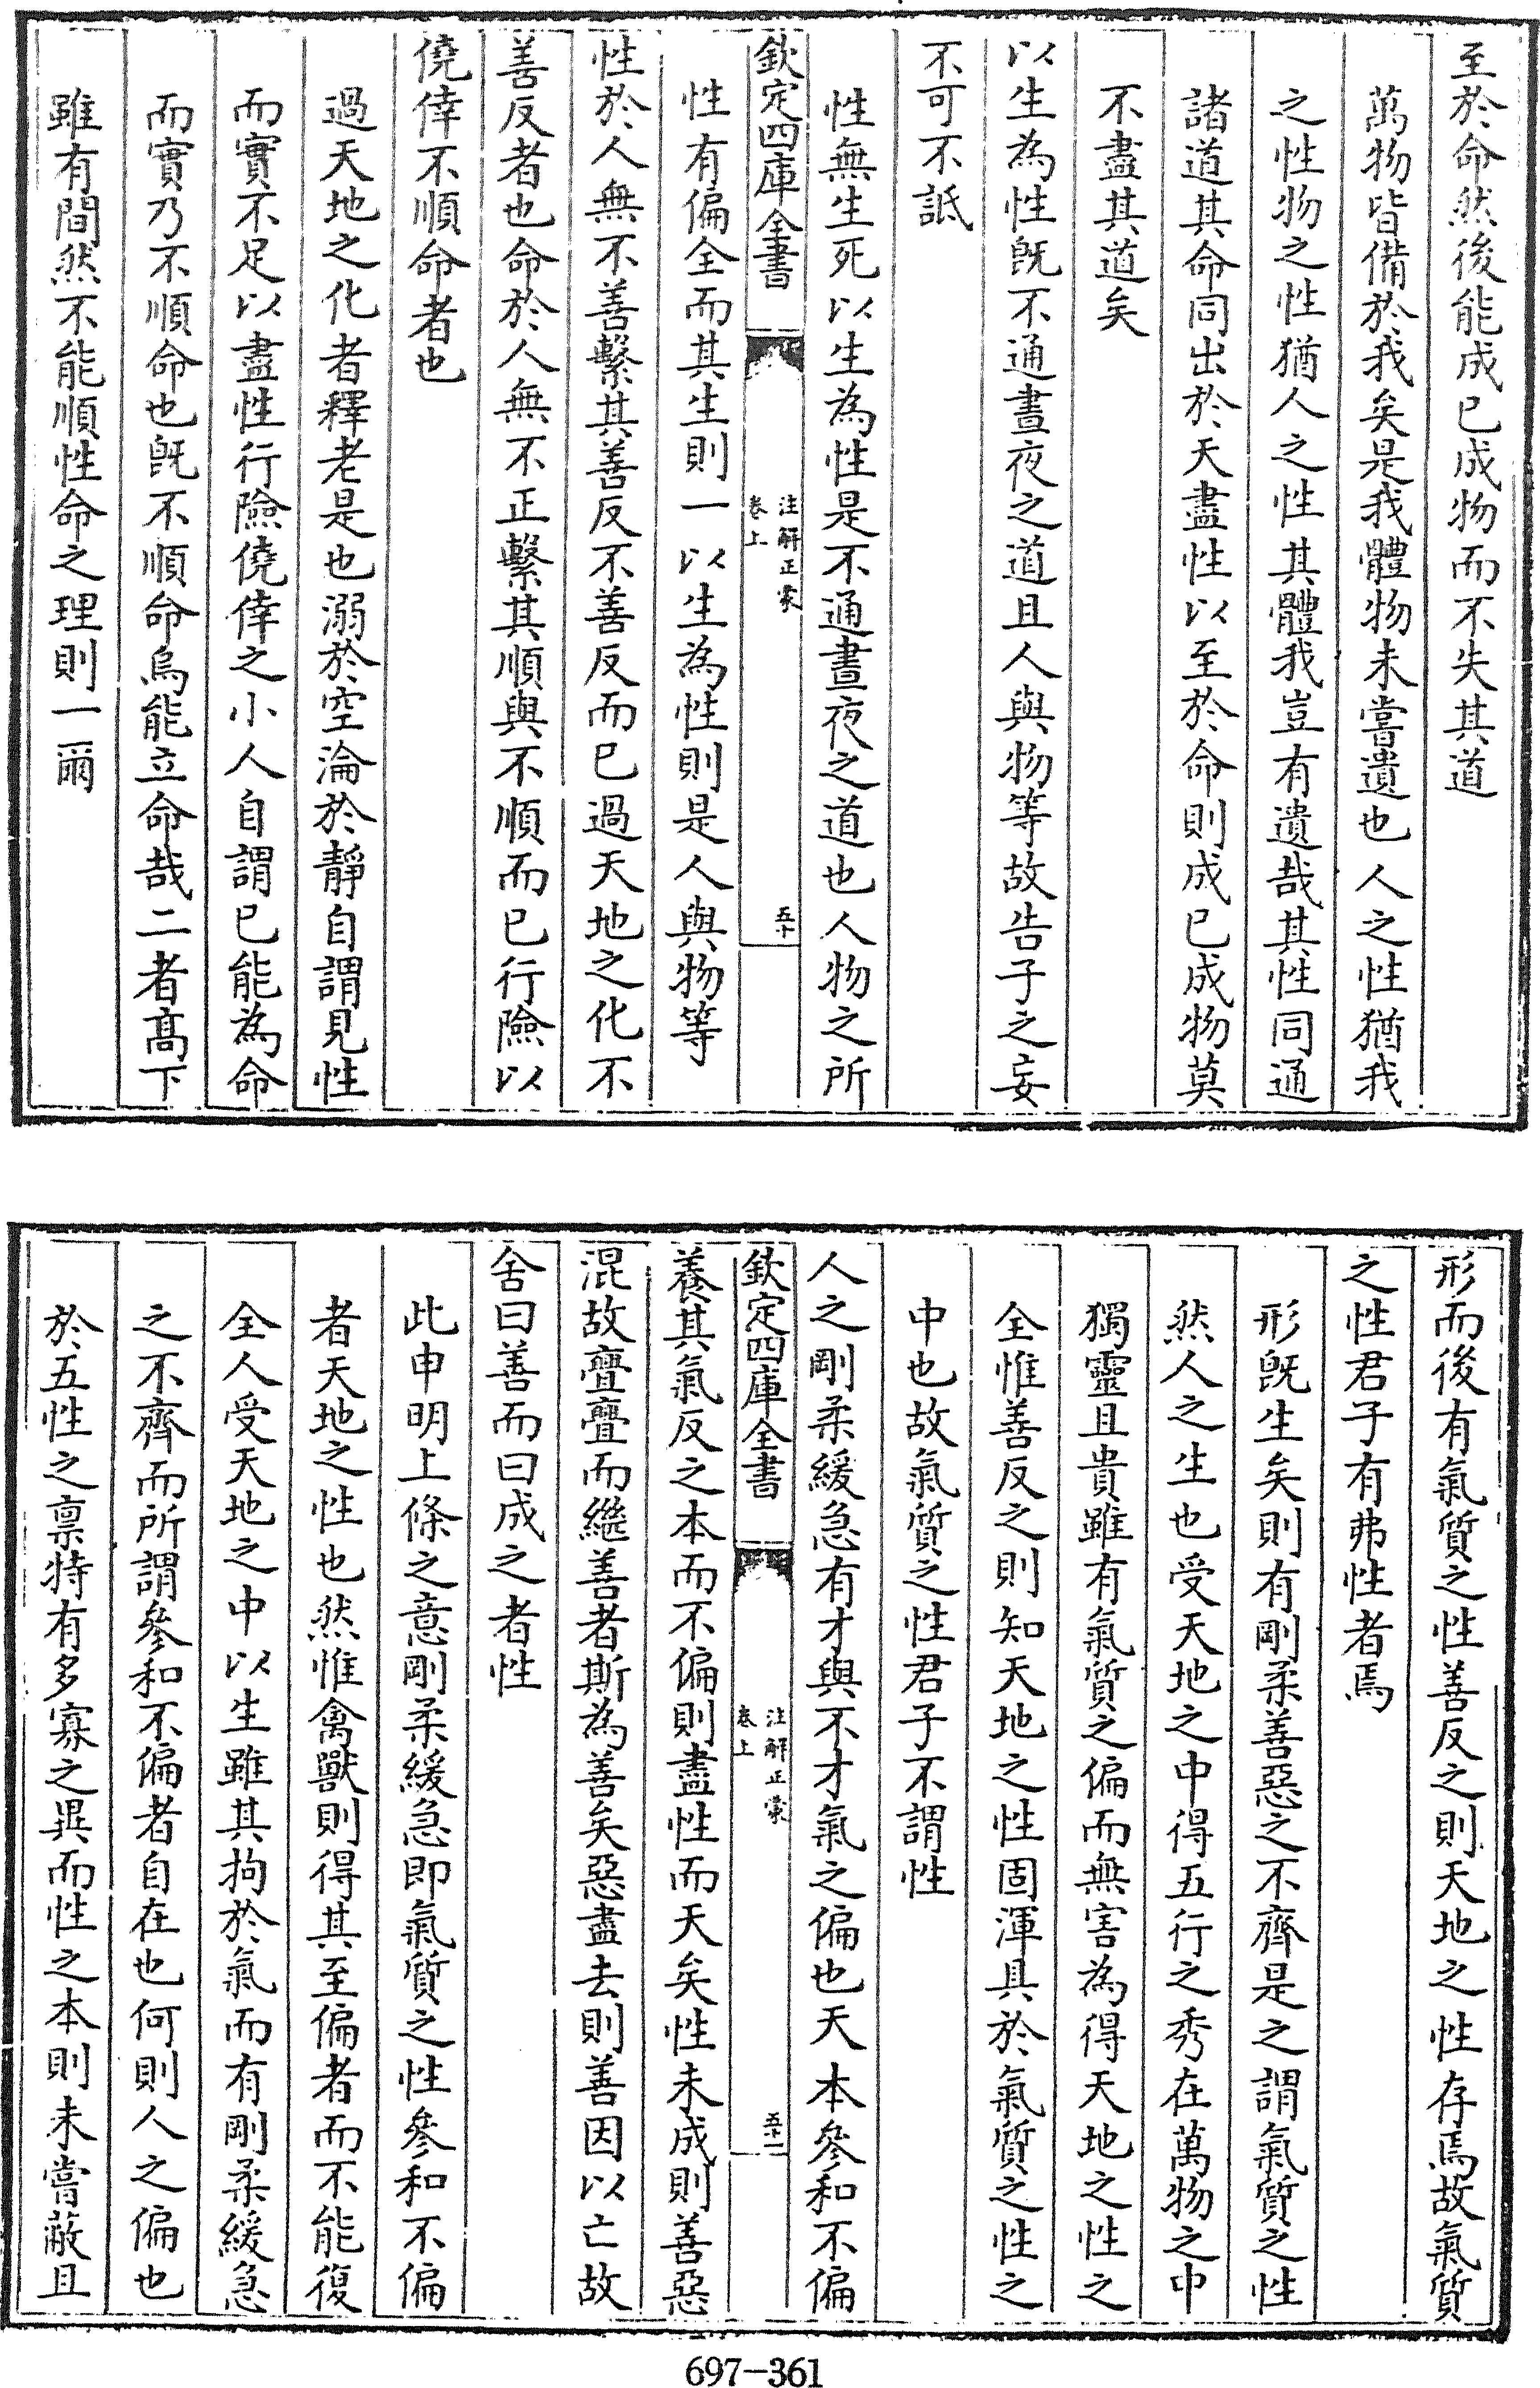 至於命然後能成已成物而不失其道
萬物皆備於我矣是我體物未嘗遺也人之性猶我
之性物之性猶人之性其體我豈有遺哉其性同通
諸道其命同出於天盡性以至於命則成已成物莫
不盡其道矣
以生為性旣不通晝夜之道且人與物等故告子之妄
不可不詆
性無生死以生為性是不通晝夜之道也人物之所
欽定四庫全書
注解正蒙
卷上
五十
性有偏全而其生則一以生為性則是人與物等
性於人無不善繫其善反不善反而已過天地之化不
善反者也命於人無不正繫其順與不順而已行險以
僥倖不順命者也
過天地之化者釋老是也溺於空淪於靜自謂見性
而實不足以盡性行險僥倖之小人自謂已能為命
而實乃不順命也旣不順命烏能立命哉二者髙下
雖有間然不能順性命之理則一爾
形而後有氣質之性善反之則天地之性存焉故氣質
之性君子有弗性者焉
形旣生矣則有剛柔善惡之不齊是之謂氣質之性
然人之生也受天地之中得五行之秀在萬物之中
獨靈且貴雖有氣質之偏而無害為得天地之性之
全惟善反之則知天地之性固渾具於氣質之性之
中也故氣質之性君子不謂性
人之剛柔緩急有才與不才氣之偏也天本參和不偏
欽定四庫全書
注解正蒙
卷上
五十一
養其氣反之本而不偏則盡性而天矣性未成則善惡
混故亹亹而繼善者斯為善矣惡盡去則善因以亡故
舍曰善而曰成之者性
此申明上條之意剛柔緩急即氣質之性參和不偏
者天地之性也然惟禽獸則得其至偏者而不能復
全人受天地之中以生雖其拘於氣而有剛柔緩急
之不齊而所謂參和不偏者自在也何則人之偏也
於五性之禀特有多寡之異而性之本則未嘗蔽且
697-361